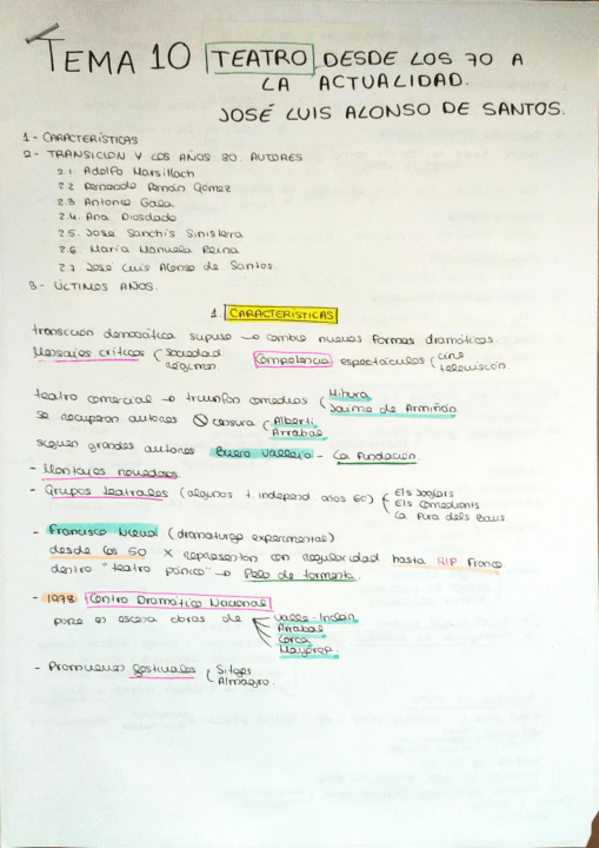 TEMA 10 TEATRO DESDE LOS 70 A
LA ACTUALIDAD.
JOSÉ LUIS ALONSO DE SANTOS.
1- CARACTERÍSTICAS
2- TRANSICION Y LOS AÑOS 80. AUTORES
2.1. Adolfo Marsillach
2.2 Fernando Fernán Gómez
2.3 Antonio Gala
2.4. Ana Diosdado
2.5. José Sanchís Sinistera
2.6. María Manuela Reina
2.7 José Luis Alonso de Santos.
3- ÚLTIMOS AÑOS.
1. CARACTERÍSTICAS
transición democrática supuso → cambio nuevas formas dramáticas.
Mensajes críticos ( sociedad Competencia espectáculos ( cine
régimen. televisión.
teatro comercial → triunfan comedias ( Mihura
Jaime de Armiñán.
se recuperan autores censura ( Alberti
Arrabal
siguen grandes autores Buero Vallejo - La Fundación.
- Montajes novedosos.
- Grupos teatrales (algunos t. independ. años 60) { Els Joglars
Els Comediants
La Fura dels Baus.
- Francisco Nieva (dramaturgo experimental)
desde los 50 X representan con regularidad hasta RIP Franco
dentro "teatro pánico" → Pelo de tormenta.
- 1978 Centro Dramático Nacional
pone en escena obras de Valle-Inclán
Arrabal
Lorca
Mayorga.
- Promueven festivales ( Sitges
Almagro.